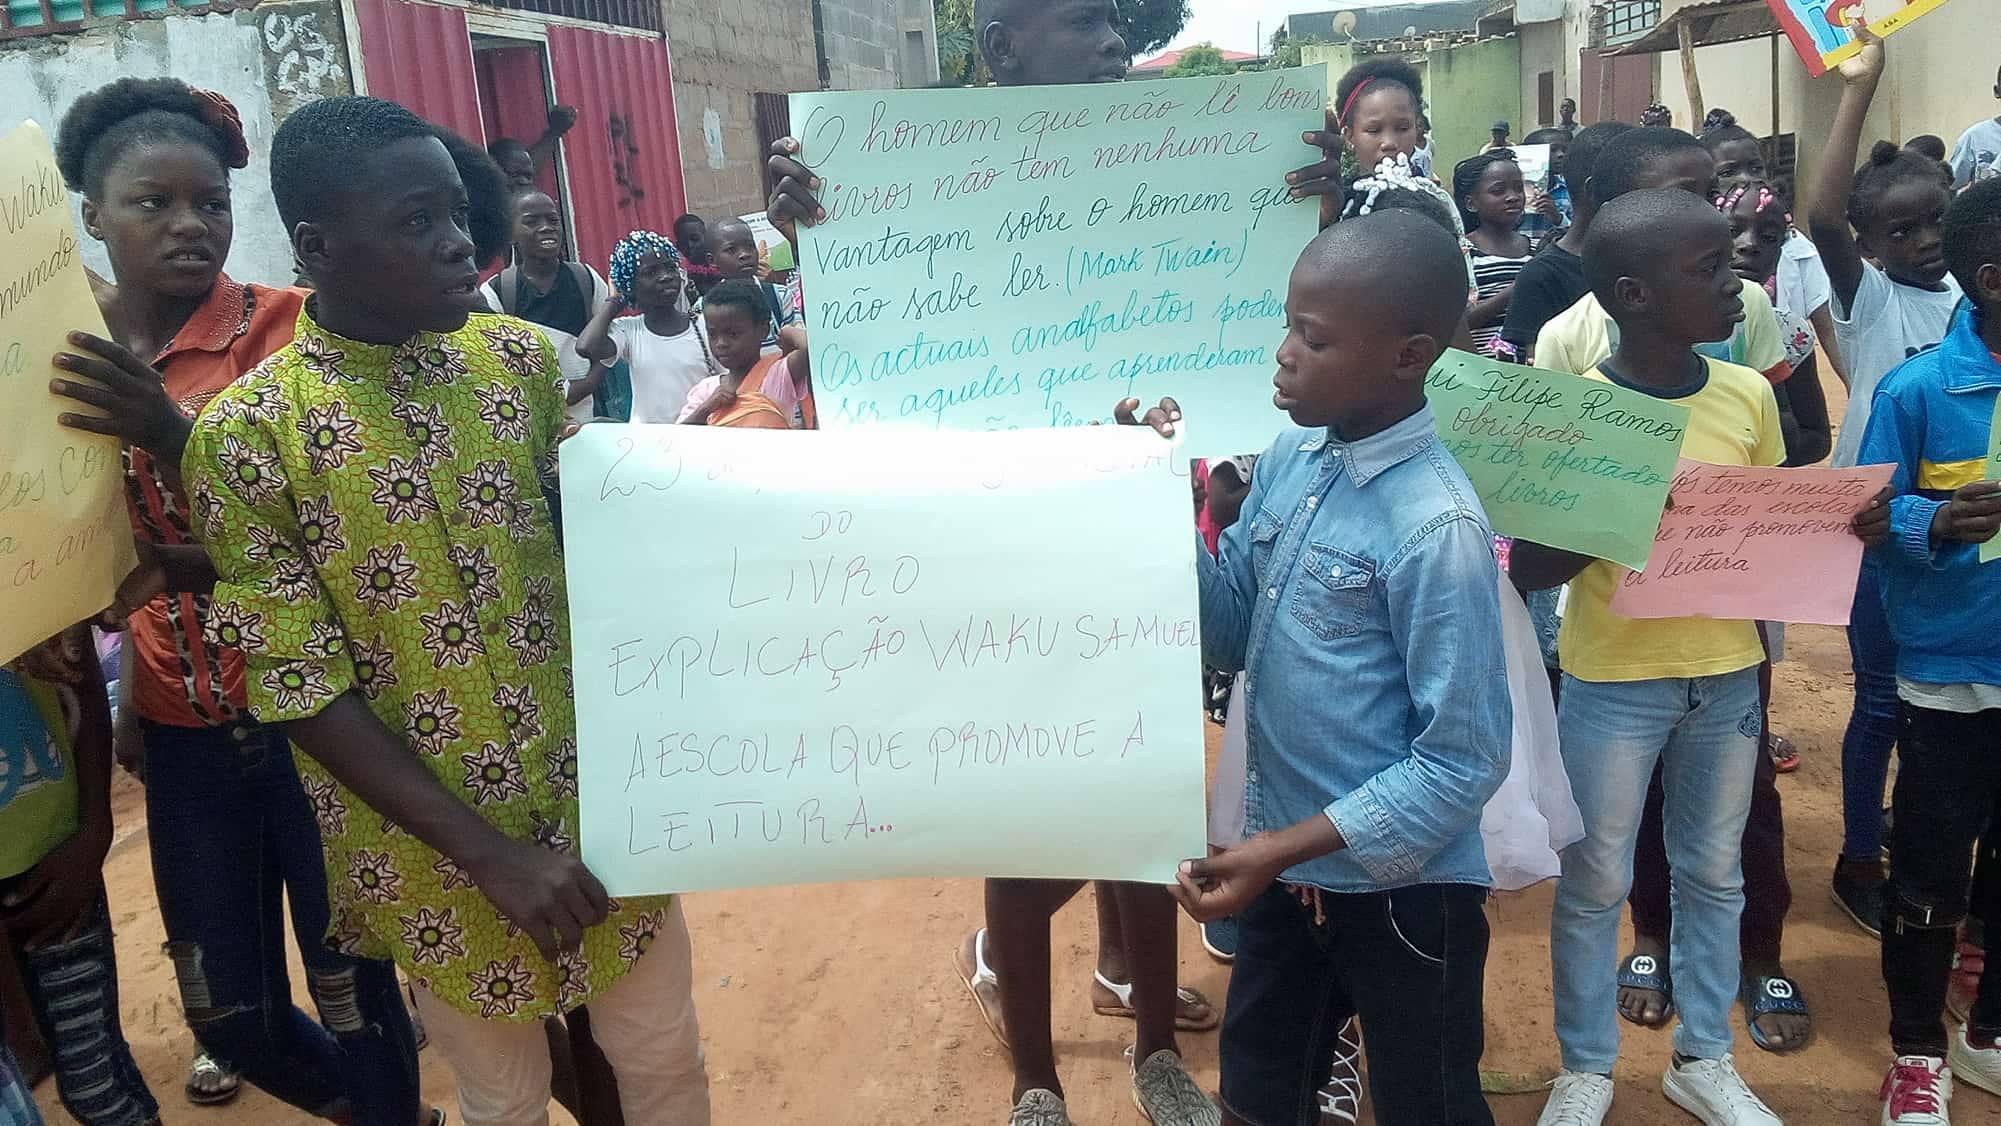 Waku
mundo
O homem que não lê bons
livros não tem nenhuma
Vantagem sobre o homem que
não sabe ler. (Mark Twain)
Os actuais analfabetos podem
ser aqueles que aprenderam
não lêem
23
DO
LIVRO
EXPLICAÇÃO WAKU SAMUEL
A ESCOLA QUE PROMOVE A
LEITURA...
Filipe Ramos
obrigado
ter ofertado
livros
temos muita
das escolas
não promovem
a leitura
ASA
GUCCI